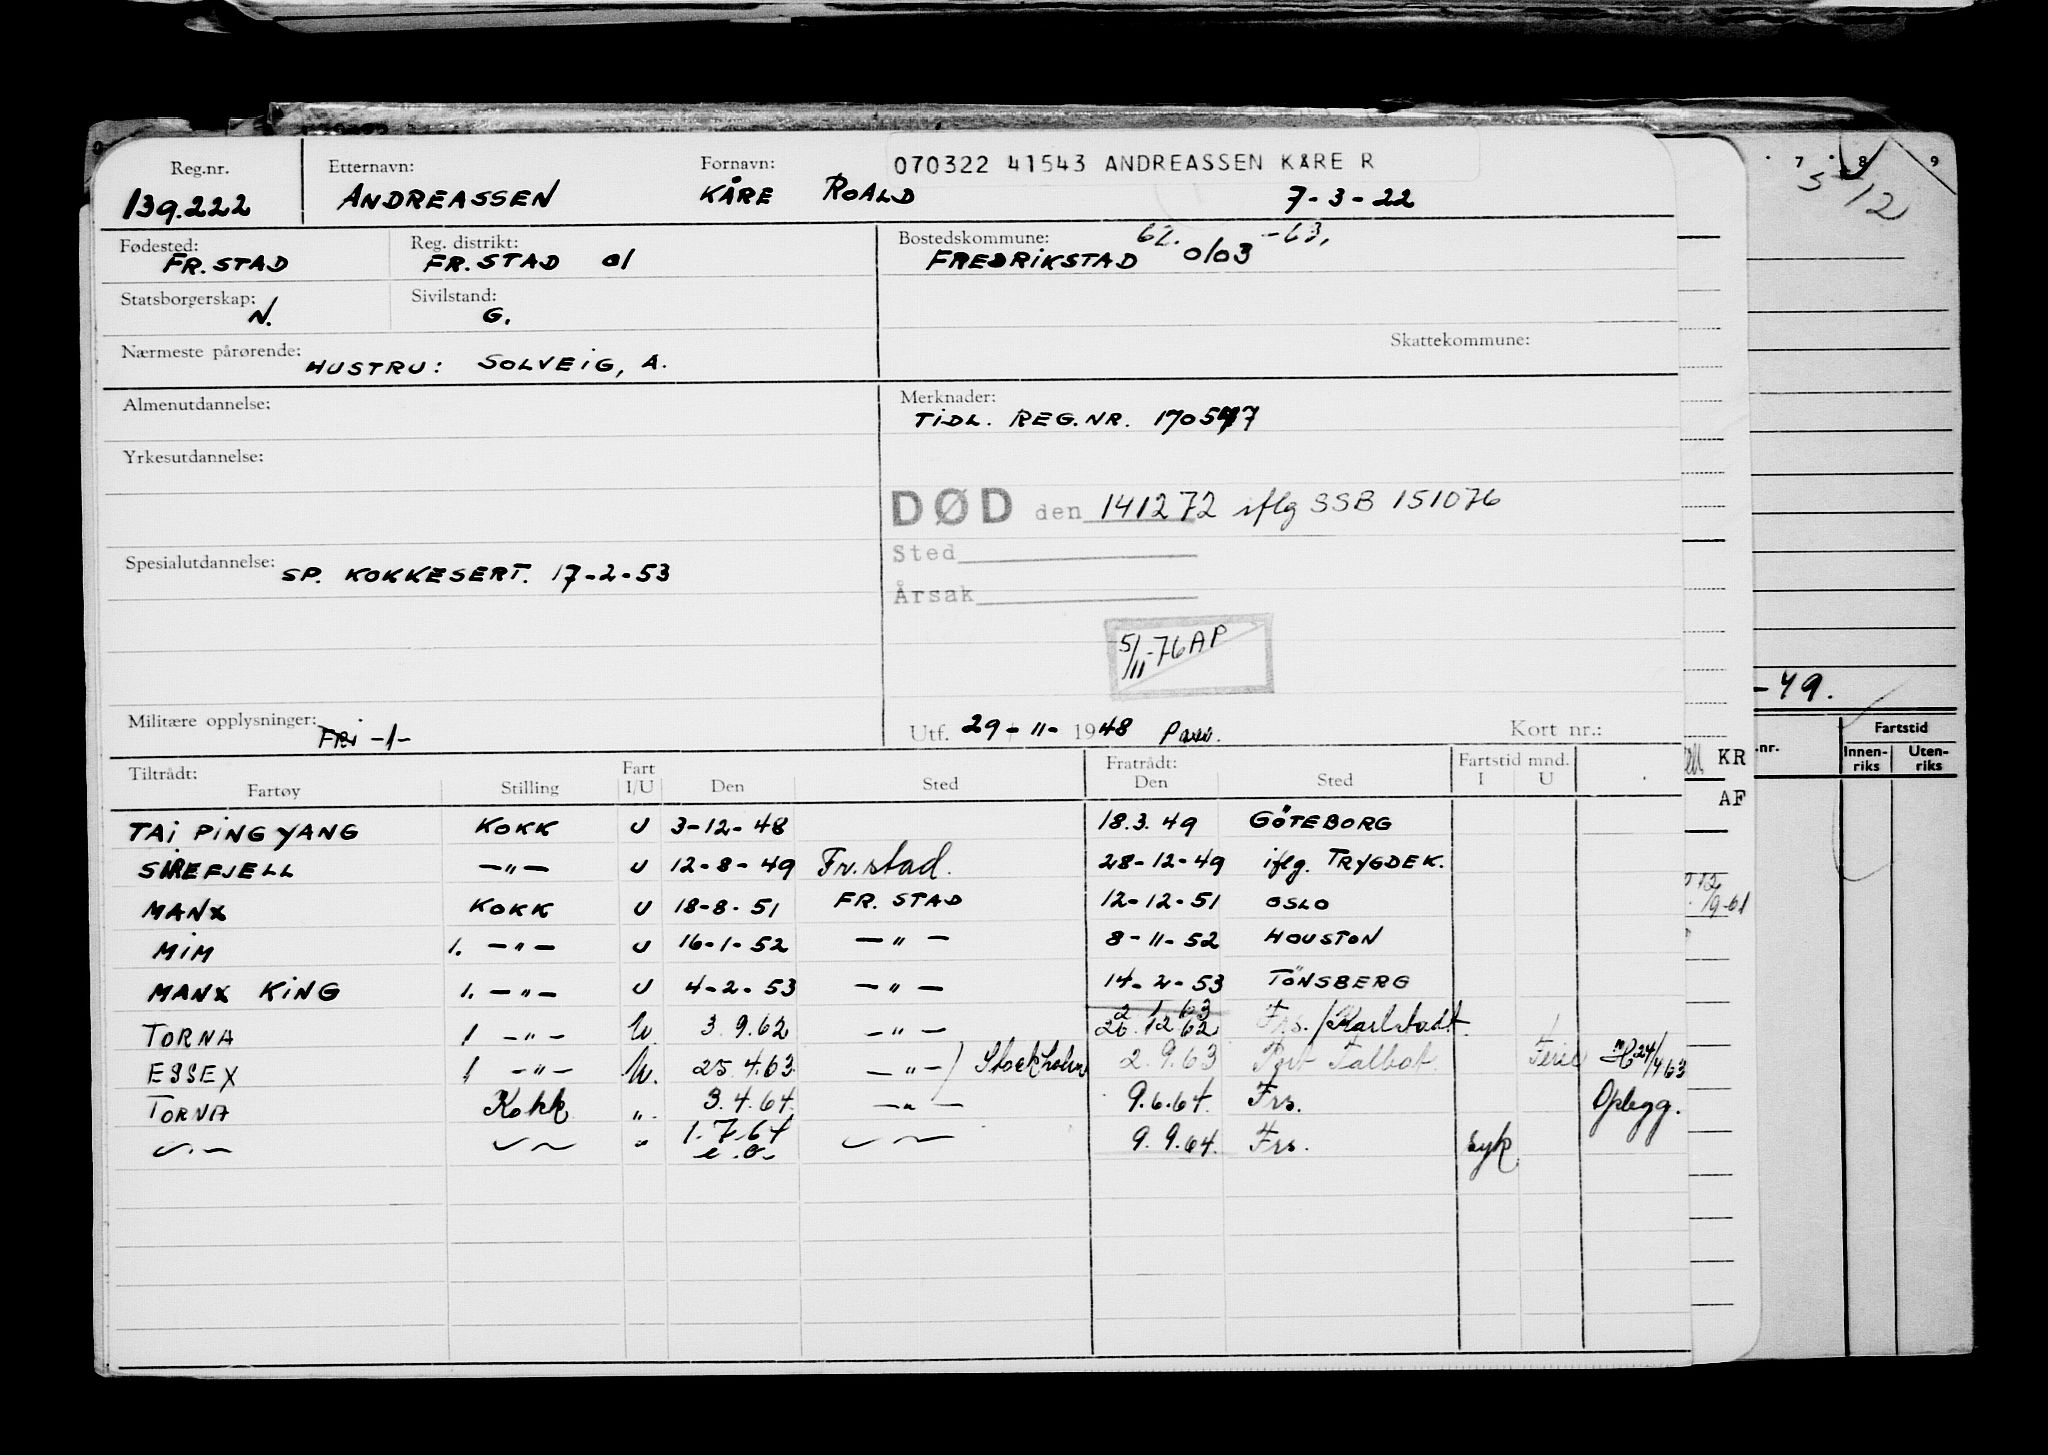 Reg.nr. Etternavn: Fornavn: 070322 41543 ANDREASSEN KÅRE R
139.222 ANDREASSEN KÅRE ROALD 7-3-22
Fødested: Reg. distrikt: Bostedskommune: 62. -63,
FR.STAD FR.STAD 01 FREDRIKSTAD 0103
Statsborgerskap: Sivilstand:
N. G.
Skattekommune:
Nærmeste pårørende: HUSTRU: SOLVEIG, A.
Almenutdannelse: Merknader:
TIDL. REG.NR.
Yrkesutdannelse:
DØD den 141272 iflg SSB 151076
Sted
Spesialutdannelse: SP. KOKKESERT. 17-2-53
Årsak
5/11-76 AP
Militære opplysninger: FRI -1- Utf. 29-11-1948 Kort nr.:
Tiltrådt: Fart Fratrådt: Fartstid mnd.
Fartøy Stilling I/U Den Sted Den Sted I U
TAI PING YANG KOKK U 3-12-48 18.3.49 GÖTEBORG
SIREFJELL —"— U 12-8-49 Fr.stad. 28-12-49 iflg. TRYGDEK.
MANX KOKK U 18-8-51 FR. STAD 12-12-51 OSLO
MIM 1. —"— U 16-1-52 —"— 8-11-52 HOUSTON
MANX KING 1. —"— U 4-2-53 —"— 14-2-53 TÖNSBERG
2 1 63
TORNA 1 —"— U. 3.9.62 —"— 20.12.62 Frs./Karlstadt
ESSEX 1 —"— U. 25.4.63 —"—/Stockholm 2.9.63 Port Talbot Ferie 24/4 63
TORNA Kokk " 3.4.64. —"— 9.6.64. Frs. Oplegg.
—"— —"— " 1.7.64 —"— 9.9.64. Frs. syk
e.o.
7 8 9
5/12
-49.
.nr. Fartstid
Innen-riks Uten-riks
KR
AF
12/9-61